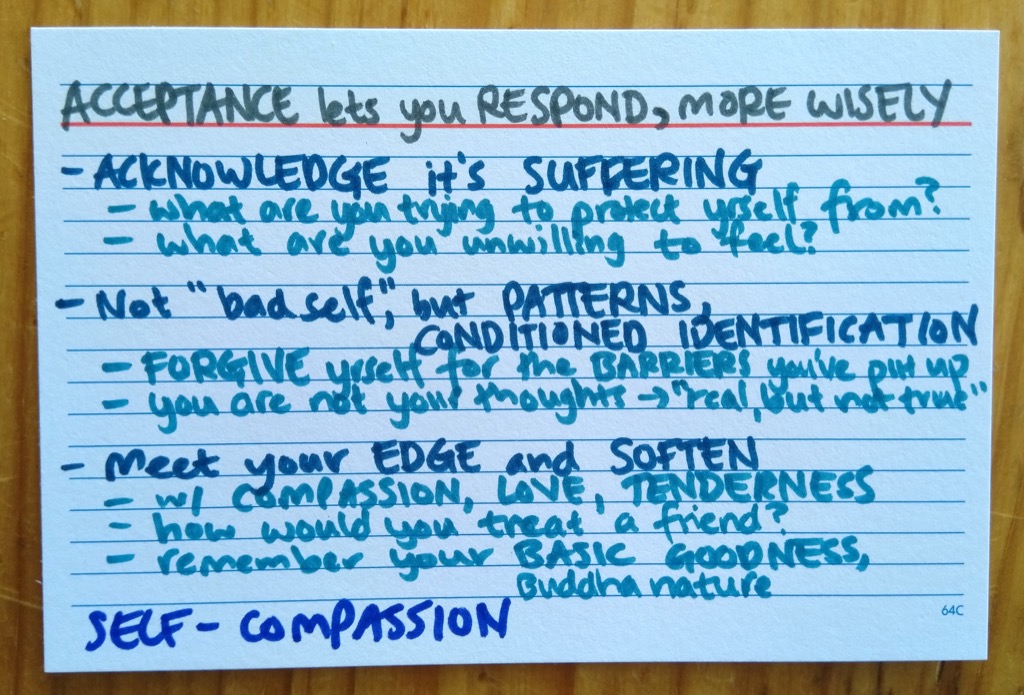 ACCEPTANCE lets you RESPOND, MORE WISELY
- ACKNOWLEDGE it's SUFFERING
- what are you trying to protect yrself from?
- what are you unwilling to feel?
- Not "bad self", but PATTERNS,
CONDITIONED IDENTIFICATION
- FORGIVE yrself for the BARRIERS you've put up
- you are not your thoughts → "real, but not true"
- Meet your EDGE and SOFTEN
- w/ COMPASSION, LOVE, TENDERNESS
- how would you treat a friend?
- remember your BASIC GOODNESS,
Buddha nature
64C
SELF-COMPASSION